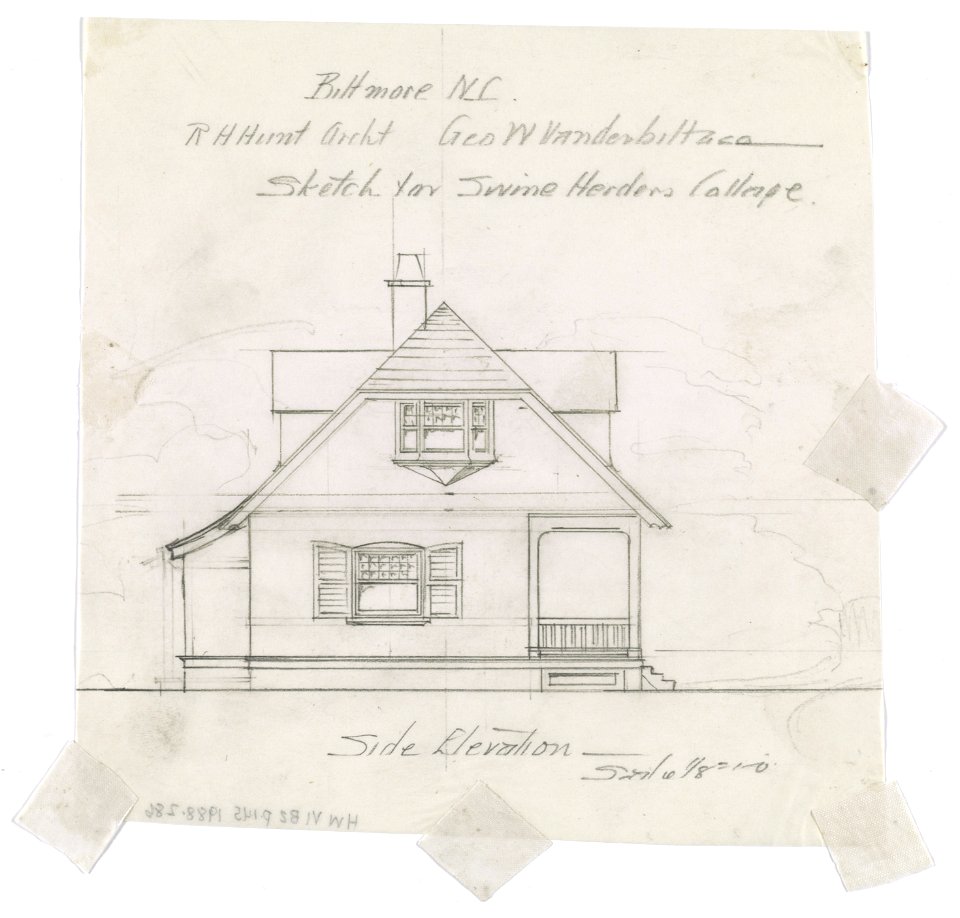 Biltmore N.C.
R H Hunt Archt Geo W Vanderbilt
Sketch for Swine Herders Cottage.
Side Elevation
Scale 1/8=1-0
HW V1 B2 p.145 1988.286